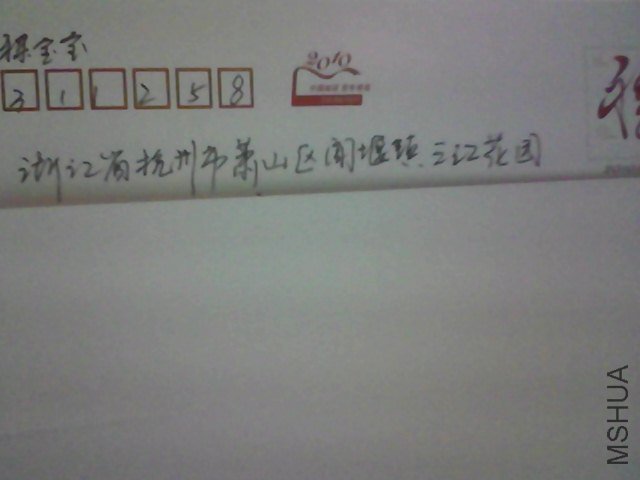 宝宝
311258
2010
浙江省杭州市萧山区闻堰镇三江花园
MSHUA